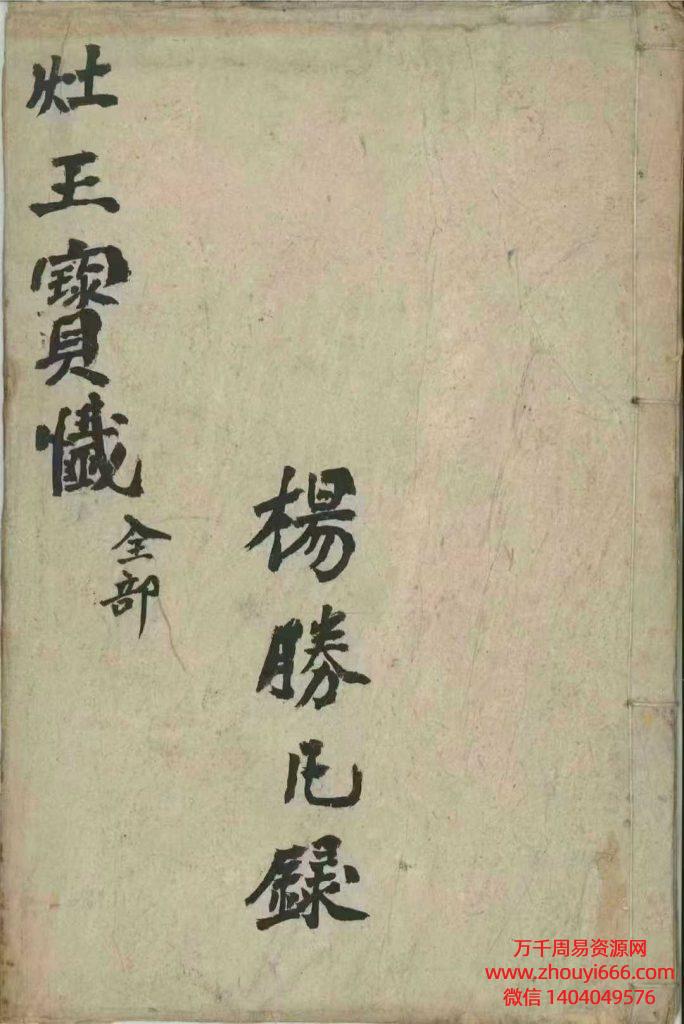 灶王寶懺
全部
楊勝□錄
万千周易资源网
www.zhouyi666.com
微信 1404049576